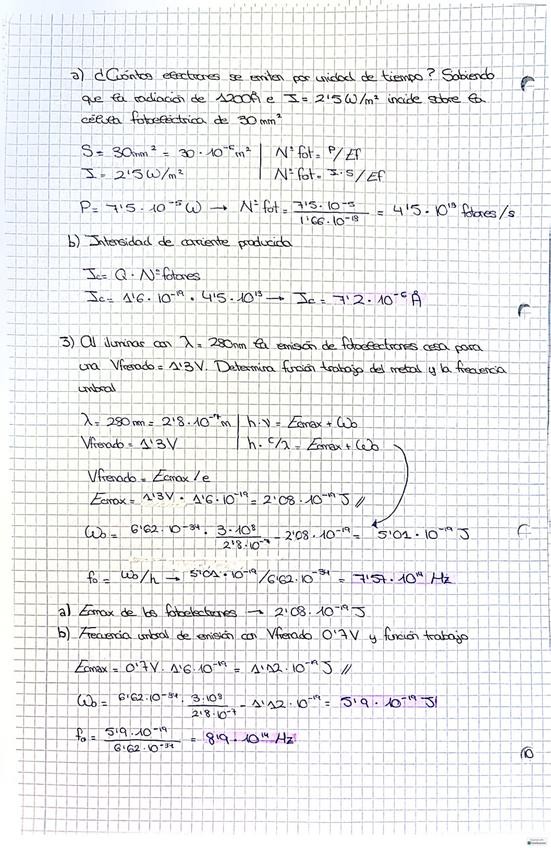 a) ¿Cuántos electrones se emiten por unidad de tiempo? Sabiendo
que la radiación de 1200Å e I = 2'5 W/m² incide sobre la
célula fotoeléctrica de 30 mm²
S = 30mm² = 30 · 10⁻⁶ m² | Nº fot = P/Ef
I = 2'5 W/m² | Nº fot = I·S/Ef
P = 7'5 · 10⁻⁵ W → Nº fot = 7'5 · 10⁻⁵ / 1'66 · 10⁻¹⁸ = 4'5 · 10¹³ fotones/s
b) Intensidad de corriente producida
Ic = Q · Nº fotones
Ic = 1'6 · 10⁻¹⁹ · 4'5 · 10¹³ → Ic = 7'2 · 10⁻⁶ A
3) Al iluminar con λ = 280nm la emisión de fotoelectrones cesa para
una Vfrenado = 1'3V. Determina función trabajo del metal y la frecuencia
umbral
λ = 280 nm = 2'8 · 10⁻⁷ m | h · ν = Ecmax + Wo
Vfrenado = 1'3V | h · c/λ = Ecmax + Wo
Vfrenado = Ecmax/e
Ecmax = 1'3V · 1'6 · 10⁻¹⁹ = 2'08 · 10⁻¹⁹ J //
Wo = 6'62 · 10⁻³⁴ · 3 · 10⁸ / 2'8 · 10⁻⁷ - 2'08 · 10⁻¹⁹ = 5'01 · 10⁻¹⁹ J
fo = Wo/h → 5'01 · 10⁻¹⁹ / 6'62 · 10⁻³⁴ = 7'57 · 10¹⁴ Hz
a) Ecmax de los fotoelectrones → 2'08 · 10⁻¹⁹ J
b) Frecuencia umbral de emisión con Vfrenado 0'7V y función trabajo
Ecmax = 0'7V · 1'6 · 10⁻¹⁹ = 1'12 · 10⁻¹⁹ J //
Wo = 6'62 · 10⁻³⁴ · 3 · 10⁸ / 2'8 · 10⁻⁷ - 1'12 · 10⁻¹⁹ = 5'9 · 10⁻¹⁹ J
fo = 5'9 · 10⁻¹⁹ / 6'62 · 10⁻³⁴ = 8'9 · 10¹⁴ Hz